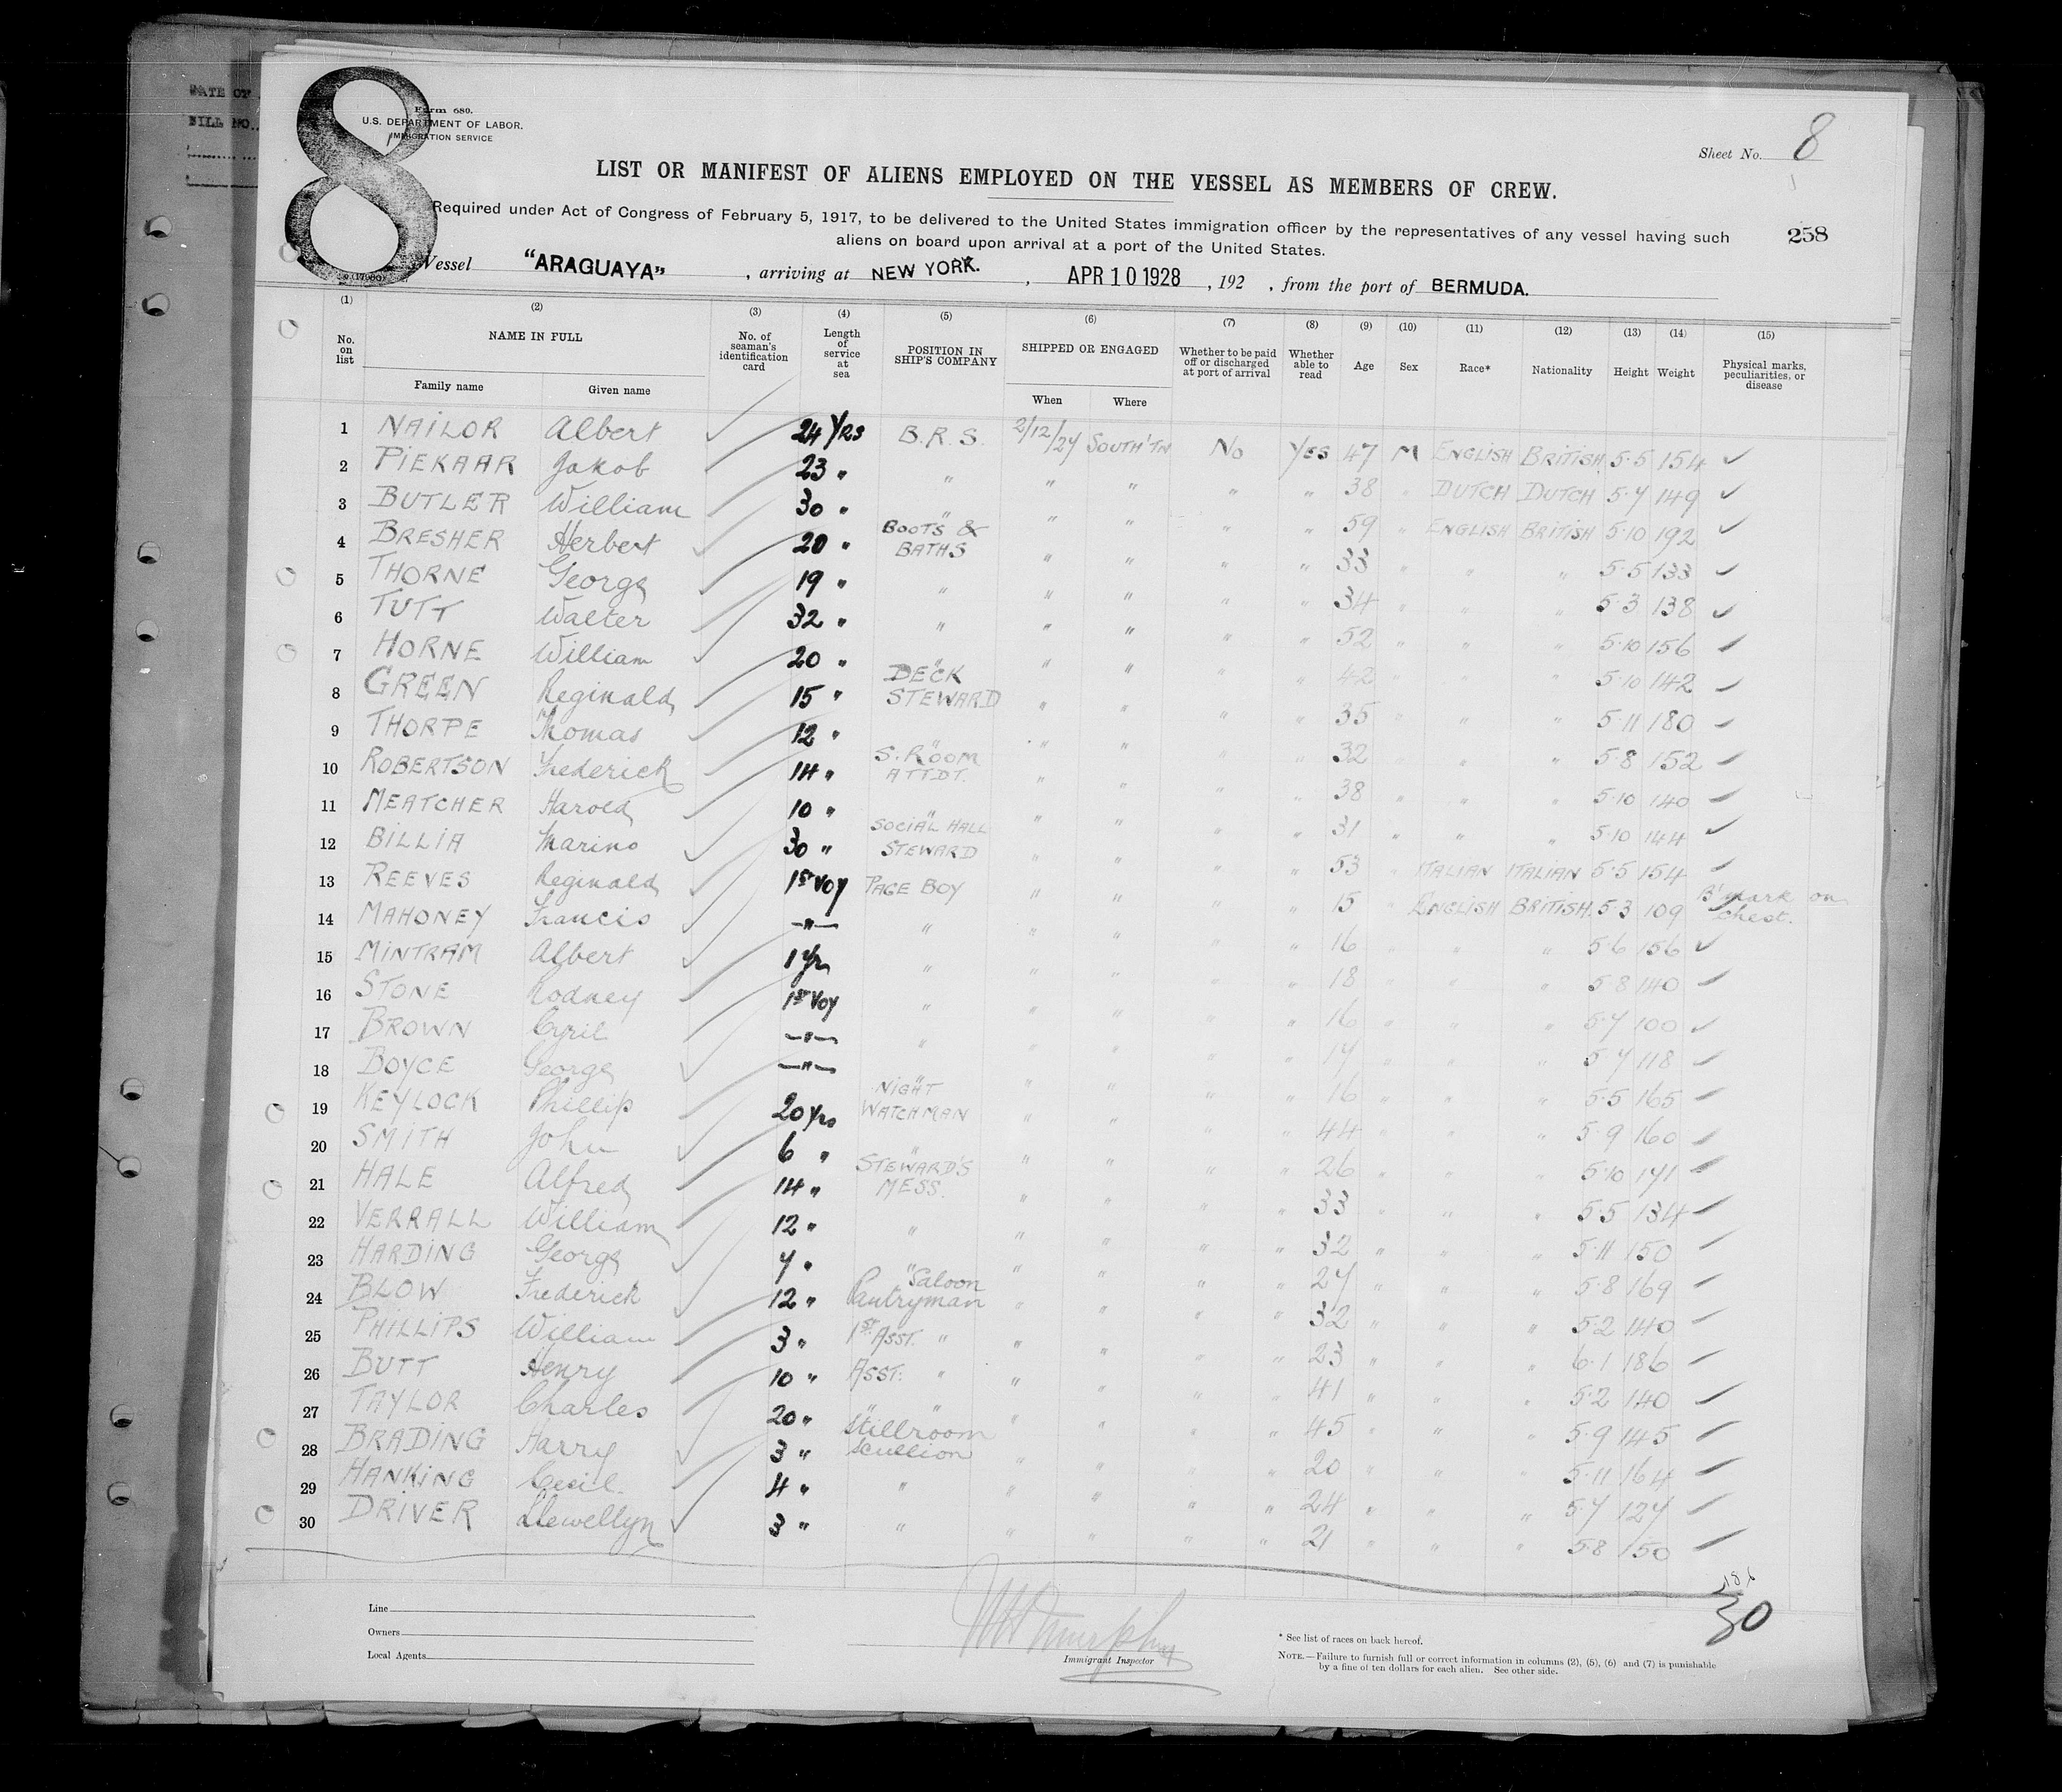 DATE OF
BILL NO.
8
Form 680.
U.S. DEPARTMENT OF LABOR.
IMMIGRATION SERVICE
Sheet No. 8
LIST OR MANIFEST OF ALIENS EMPLOYED ON THE VESSEL AS MEMBERS OF CREW.
Required under Act of Congress of February 5, 1917, to be delivered to the United States immigration officer by the representatives of any vessel having such
aliens on board upon arrival at a port of the United States.
258
Vessel "ARAGUAYA", arriving at NEW YORK. , APR 10 1928 , 192 , from the port of BERMUDA.
(1) (2) (3) (4) (5) (6) (7) (8) (9) (10) (11) (12) (13) (14) (15)
No. on list NAME IN FULL No. of seaman's identification card Length of service at sea POSITION IN SHIP'S COMPANY SHIPPED OR ENGAGED Whether to be paid off or discharged at port of arrival Whether able to read Age Sex Race* Nationality Height Weight Physical marks, peculiarities, or disease
Family name Given name When Where
1 NAILOR Albert 24 Yrs B.R.S. 2/12/27 SOUTH'TN No YES 47 M ENGLISH BRITISH 5·5 154 ✓
2 PIEKAAR Jakob 23 " " " " " " 38 " DUTCH DUTCH 5·7 149 ✓
3 BUTLER William 30 " " " " " " 59 " ENGLISH BRITISH 5·10 192 ✓
4 BRESHER Herbert 20 " BOOTS & BATHS " " " " 33 " " " 5·5 133 ✓
5 THORNE George 19 " " " " " " 34 " " " 5·3 138 ✓
6 TUTT Walter 32 " " " " " " 52 " " " 5·10 156 ✓
7 HORNE William 20 " " " " " " 42 " " " 5·10 142 ✓
8 GREEN Reginald 15 " DECK STEWARD " " " " 35 " " " 5·11 180 ✓
9 THORPE Thomas 12 " " " " " " 32 " " " 5·8 152 ✓
10 ROBERTSON Frederick 14 " S. ROOM ATTDT. " " " " 38 " " " 5·10 140 ✓
11 MEATCHER Harold 10 " " " " " " 31 " " " 5·10 144 ✓
12 BILLIA Marino 30 " SOCIAL HALL STEWARD " " " " 53 " ITALIAN ITALIAN 5·5 154 ✓
13 REEVES Reginald 1st Voy PAGE BOY " " " " 15 " ENGLISH BRITISH. 5·3 109 B'mark on chest.
14 MAHONEY Francis —"— " " " " " 16 " " " 5·6 156 ✓
15 MINTRAM Albert 1 yr " " " " " 18 " " " 5·8 140 ✓
16 STONE Rodney 1st Voy " " " " " 16 " " " 5·7 100 ✓
17 BROWN Cyril —"— " " " " " 17 " " " 5·7 118 ✓
18 BOYCE George —"— " " " " " 16 " " " 5·5 165 ✓
19 KEYLOCK Phillip 20 yrs NIGHT WATCHMAN " " " " 44 " " " 5·9 160 ✓
20 SMITH John 6 " " " " " " 26 " " " 5·10 171 ✓
21 HALE Alfred 14 " STEWARD'S MESS. " " " " 33 " " " 5·5 134 ✓
22 VERRALL William 12 " " " " " " 32 " " " 5·11 150 ✓
23 HARDING George 7 " " " " " " 27 " " " 5·8 169 ✓
24 BLOW Frederick 12 " Saloon Pantryman " " " " 32 " " " 5·2 140 ✓
25 PHILLIPS William 3 " 1st ASST. " " " " " 23 " " " 6·1 186 ✓
26 BUTT Henry 10 " ASST. " " " " " 41 " " " 5·2 140 ✓
27 TAYLOR Charles 20 " " " " " " " 45 " " " 5·9 145 ✓
28 BRADING Harry 3 " Stillroom Scullion " " " " 20 " " " 5·11 164 ✓
29 HANKING Cecil. 4 " " " " " " 24 " " " 5·7 127 ✓
30 DRIVER Llewellyn 3 " " " " " " 21 " " " 5·8 150 ✓
30
Line
Owners
Local Agents
Immigrant Inspector
* See list of races on back hereof.
NOTE.—Failure to furnish full or correct information in columns (2), (5), (6) and (7) is punishable
by a fine of ten dollars for each alien. See other side.